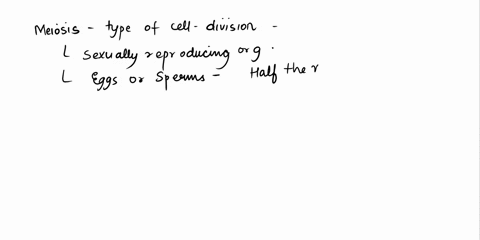 Meiosis - type of cell-division -
└ sexually reproducing org.
└ Eggs or Sperms - Half the r